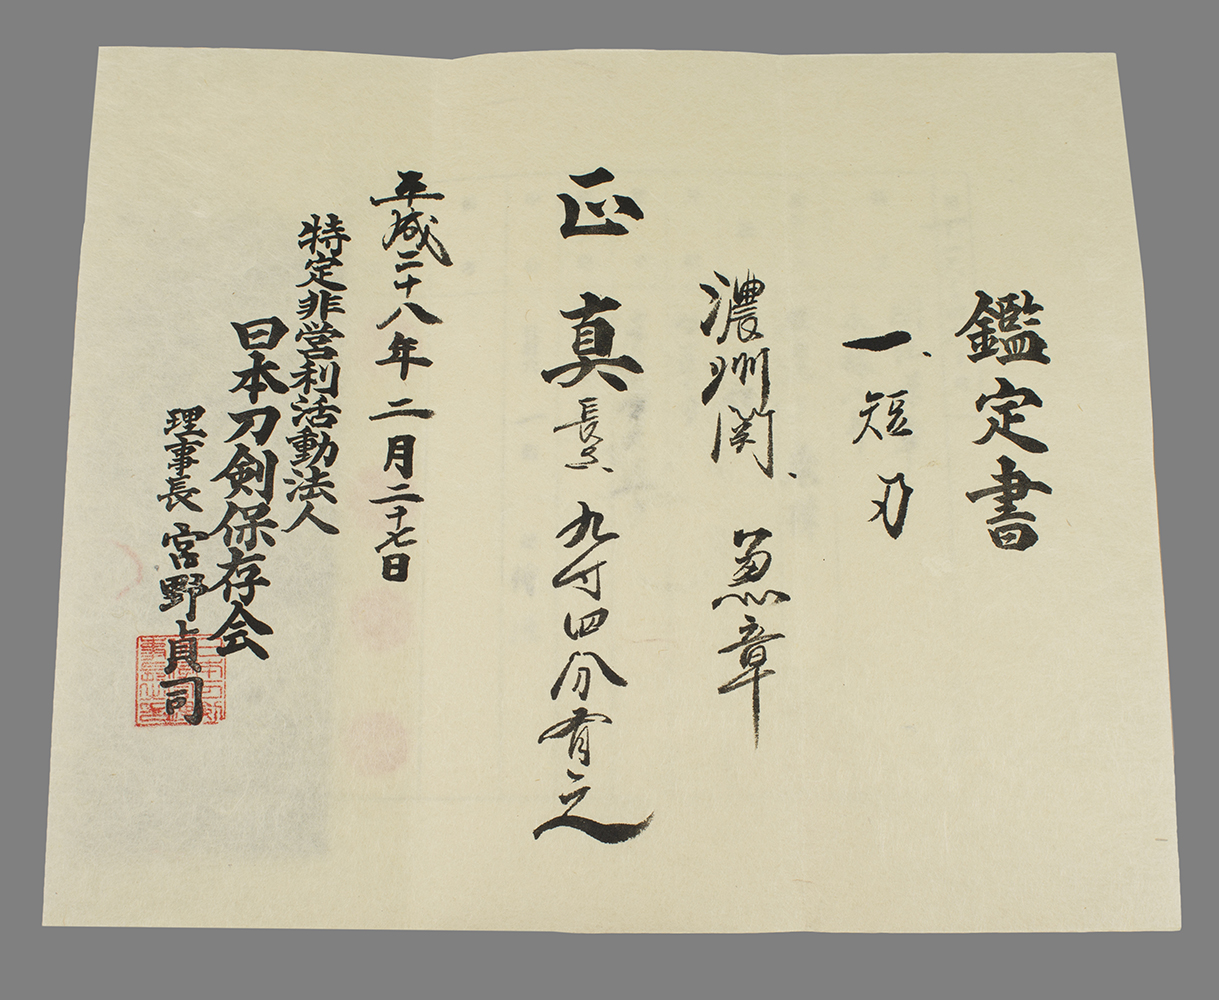 鑑定書
一、短刀
濃州関、兼章
正真 長さ 九寸四分有之
平成二十八年二月二十七日
特定非営利活動法人
日本刀剣保存会
理事長 宮野貞司